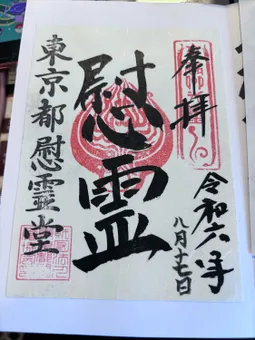 奉拝
令和六年
八月十七日
慰霊
東京都慰霊堂